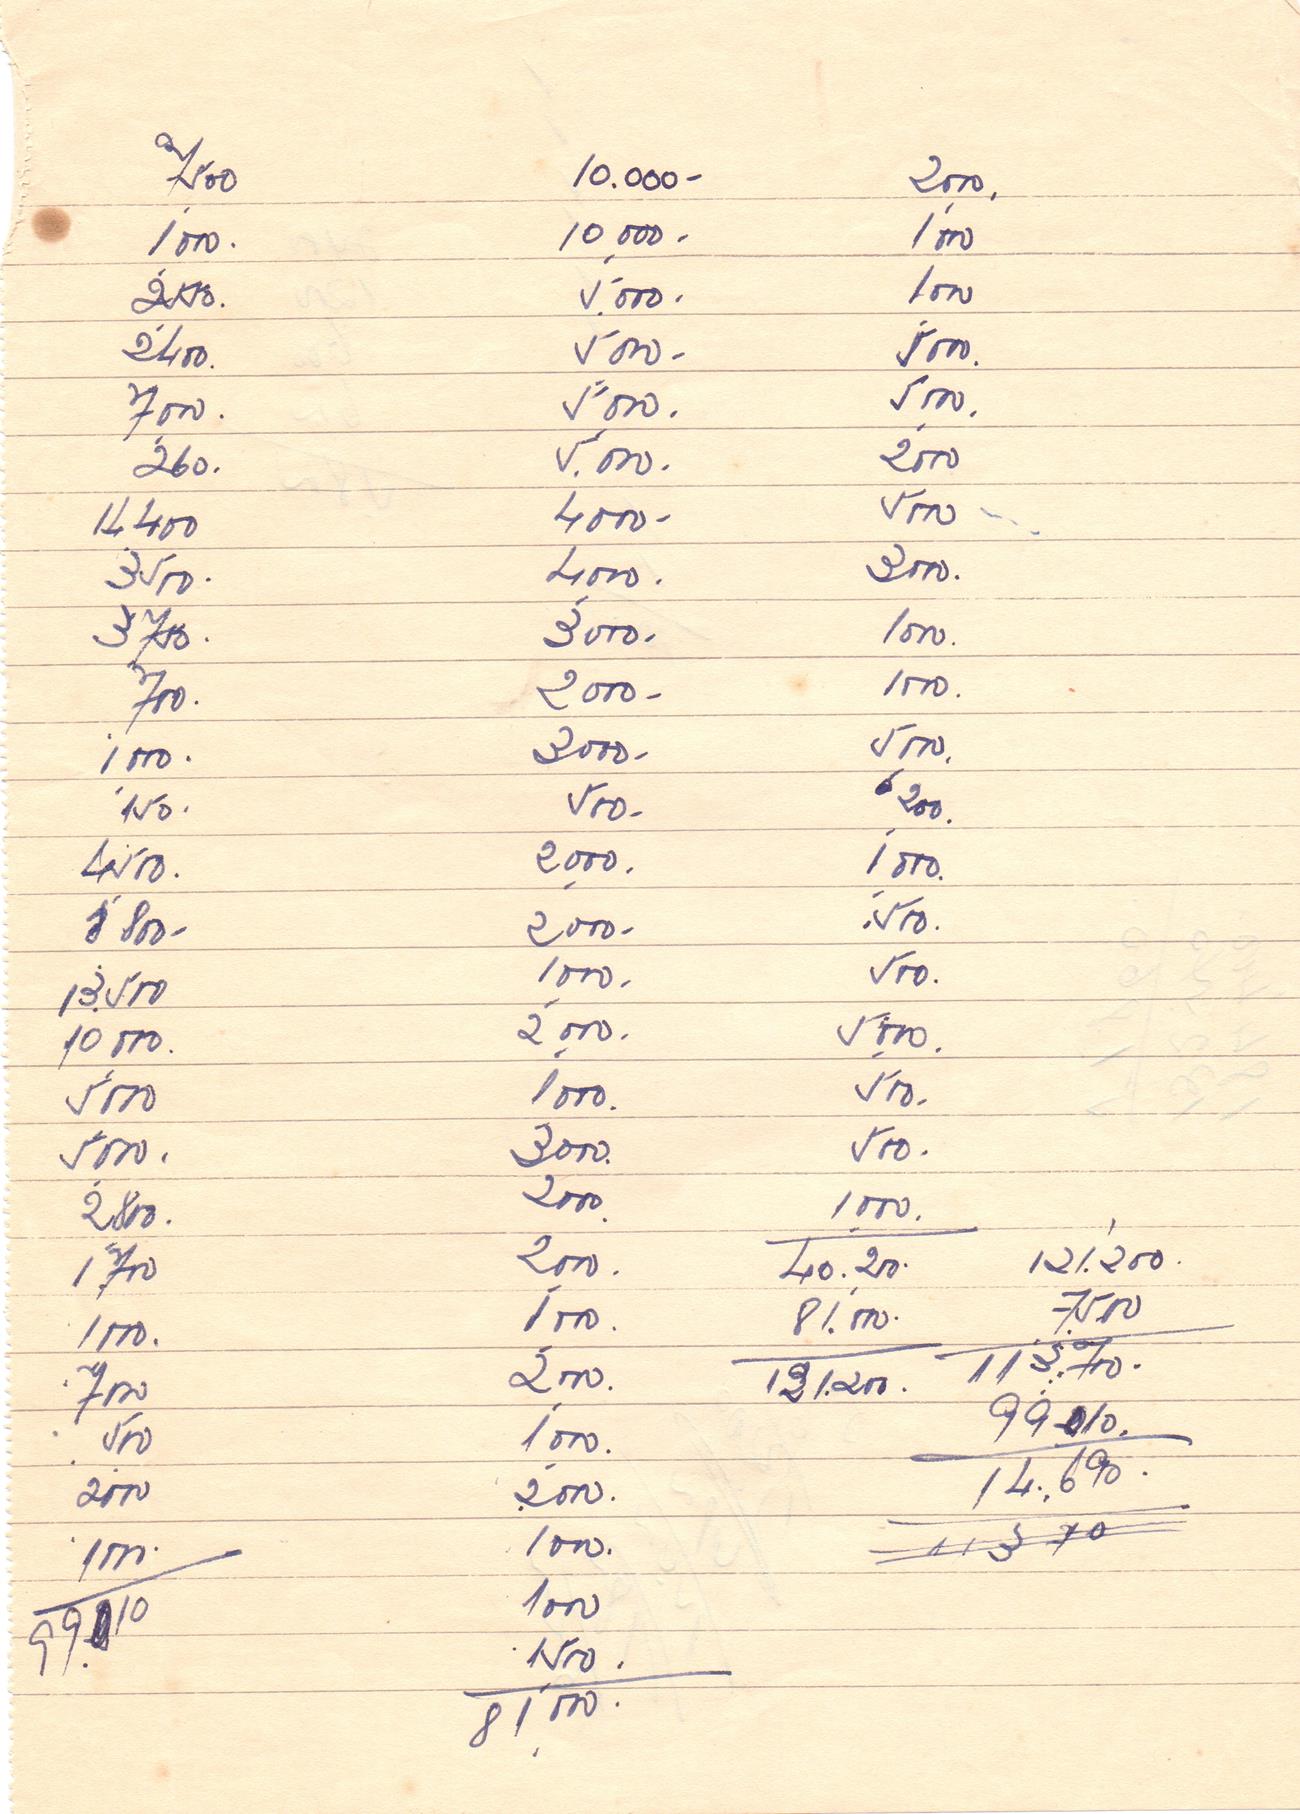 7500
1000.
2500.
2400.
7000.
260.
14.400
3500.
3700.
700.
1000.
150.
4500.
1800-
13.500
10000.
5000
5000.
2800.
1.700
1000.
7000
500
2000
1000.
99.010
10.000-
10.000.
5.000.
5000-
5000.
5.000.
4000-
4000.
3000.
2000-
3000-
500-
2000.
2000-
1000.
2000.
1000.
3000.
2000.
2000.
1000.
2000.
1000.
2000.
1000.
1000
1500.
81.000.
2000.
1000
1000
5000.
5000.
2000
5000
3000.
1000.
1000.
5000.
200.
1000.
500.
500.
5000.
500.
500.
1000.
40.200.
81.000.
121.200.
121.200.
7500
113.700.
99.010.
14.690.